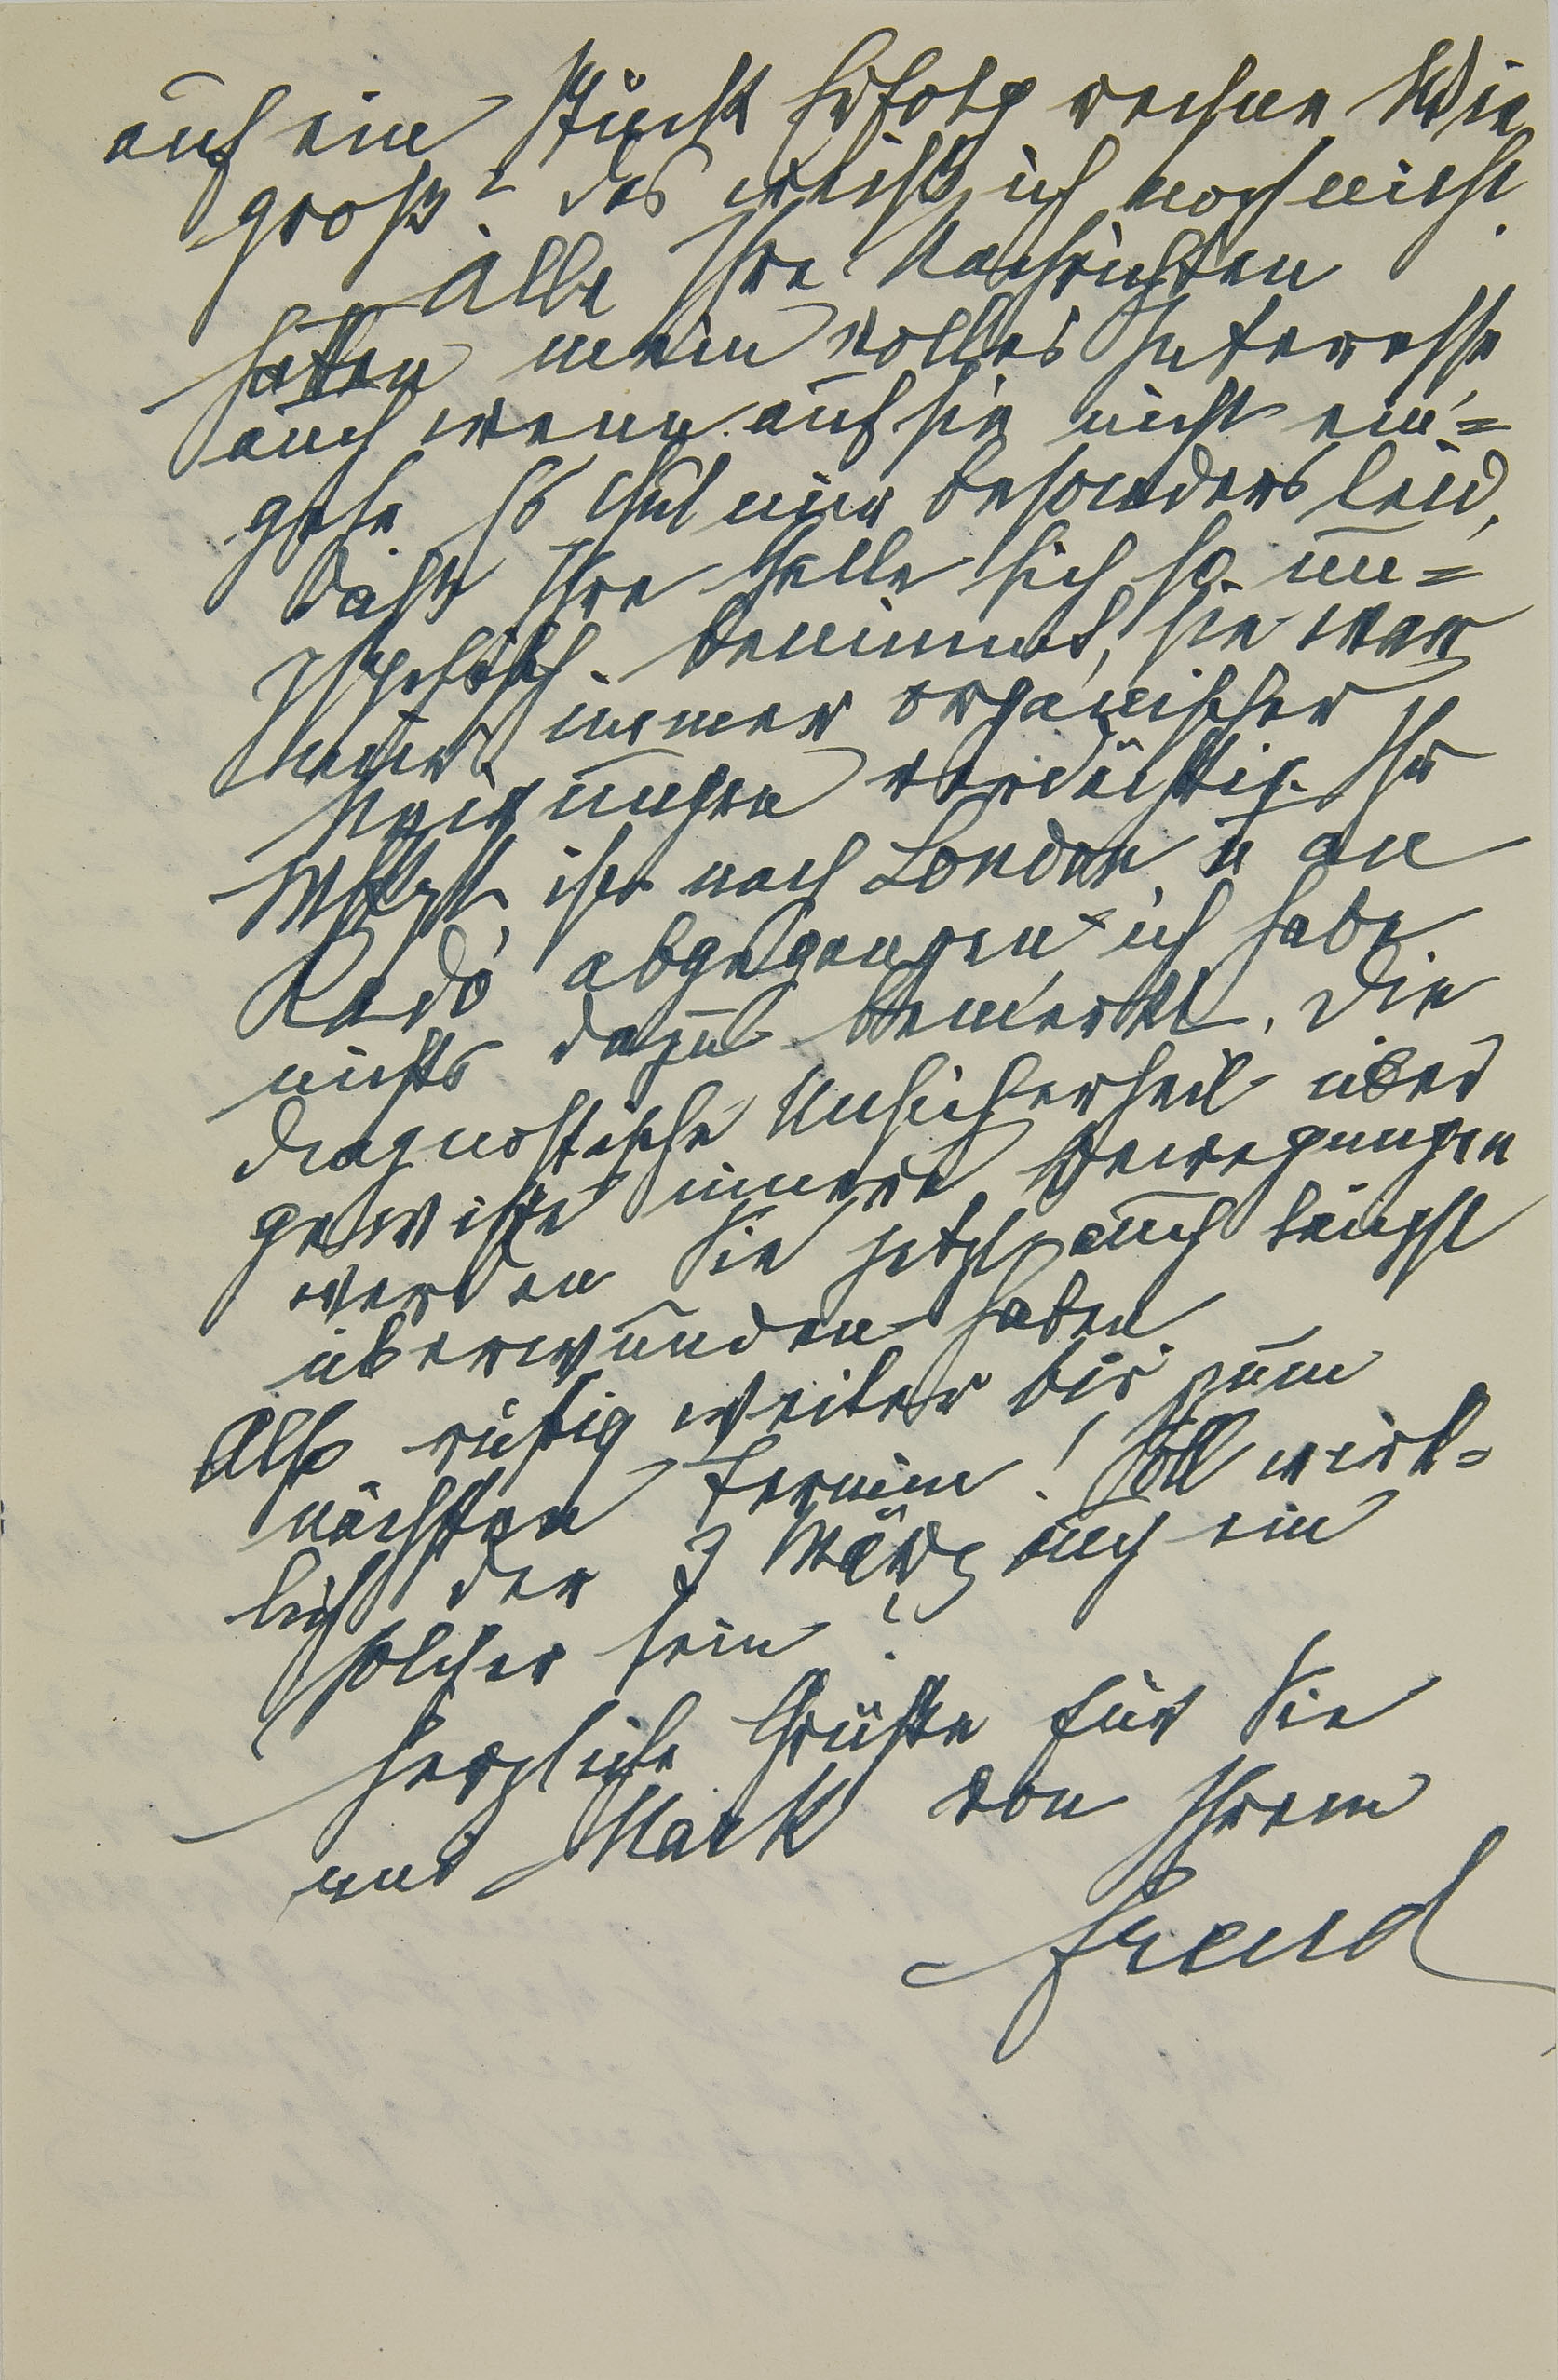 auf ein Stück Erfolg rechne Wie
groß? das weiß ich noch nicht.
Alle Ihre Nachrichten
hatten mein volles Interesse
auch wenn auf sie nicht ein=
gehe. Es thut mir besonders leid,
daß Ihre Helle sich so un=
benimmt, sie war
immer organischer
Neigungen verdächtig. Ihr
ist nach London u an
Radó abgegangen ich habe
nichts dazu bemerkt. Die
diagnostische Unsicherheit über
gewisse innere Bewegungen
werden Sie jetzt auch längst
überwunden haben.
Also ruhig weiter bis zum
nächsten Termin! Soll wirk=
lich der 3 März auch ein
solcher sein?
Herzliche Grüße für Sie
und Mark von Ihrem
Freud